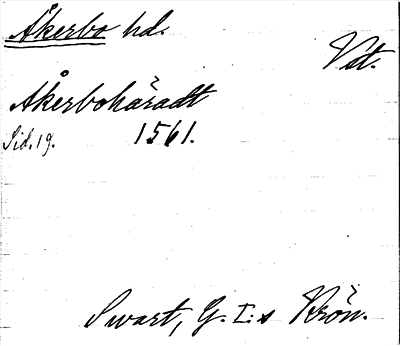 Åkerbo hd.
Vstm.
Åkerbohäradt
1561.
Sid. 19.
Swart, G. I:s Krön.